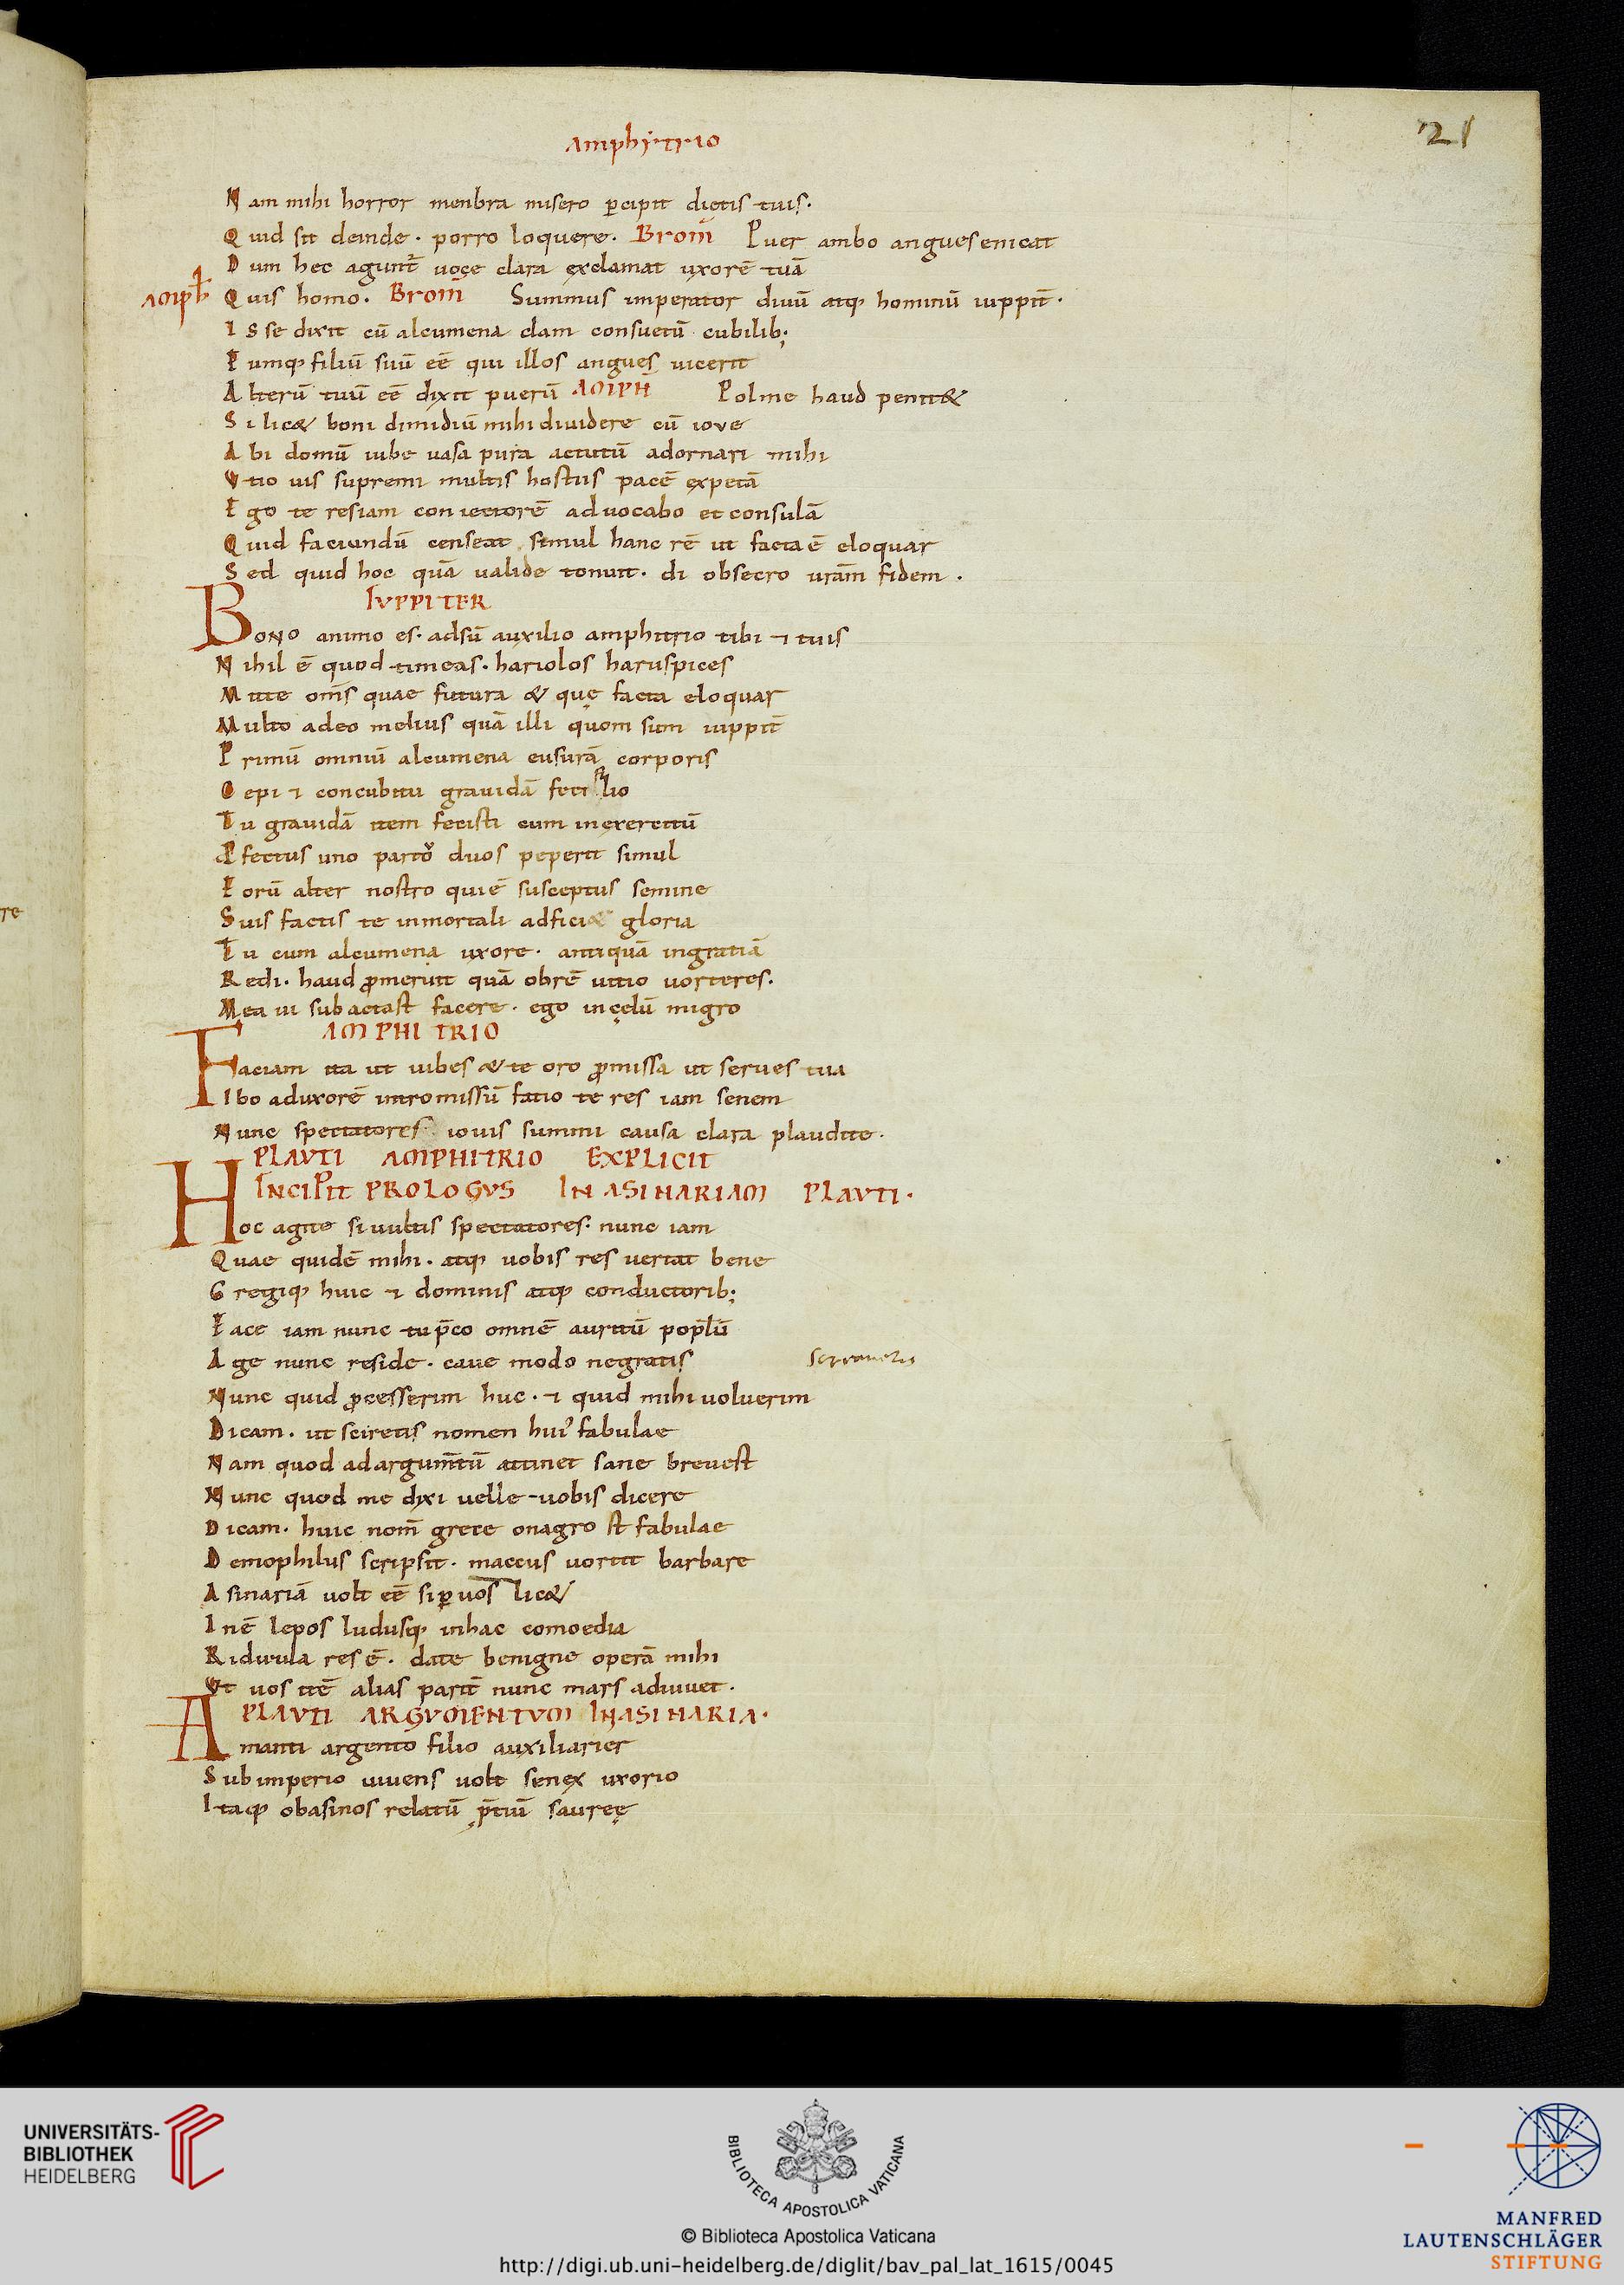 Amphytrio
21
Nam mihi horror menbra misero ꝑcipit dictis tuis.
Quid sit deinde. porro loquere. Brom̄ Puer ambo angues enicat
Dum hec agunt̄ uoce clara exclamat uxorē tuā
Amph̄ Quis homo. Brom̄ Summus imperator diuū atq; hominū iuppit̄.
Is se dixit cū alcumena clam consuetū cubilib;
Eumq; filiū suū eē qui illos angues uicerit
Alterū tuū eē dixit puerū AMPH Polme haud penit&
Si lic& boni dimidiū mihi diuidere cū ioue
Abi domū iube uasa pura actutū adornari mihi
Vtio uis supremi multis hostiis pacē expetā
Ego te resiam coniectorē aduocabo et consulā
Quid faciundū censeat simul hanc rē ut facta ē eloquar
Sed quid hoc quā ualide tonuit. di obsecro uram̄ fidem.
IVPPITER
Bono animo es. adsū auxilio amphitrio tibi ⁊ tuis
Nihil ē quod timeas. hariolos haruspices
Mitte oms̄ quae futura & quę facta eloquar
Multo adeo melius quā illi quom sum iuppit̄
Primū omniū alcumena eusurā corporis
Cepi ⁊ concubitu grauidā feci filio
Tu grauidā item fecisti cum inexercitū
Pfectus uno parto duos peperit simul
Eorū alter nostro qui ē susceptus semine
Suis factis te inmortali adfici& gloria
Tu cum alcumena uxore. antiquā ingratiā
Redi. haud ꝓmeruit quā obrē uitio uorteres.
Mea ui subactast facere. ego incęlū migro
AMPHITRIO
Faciam ita ut iubes & te oro ꝓmissa ut serues tua
Ibo aduxorē intro missū fatio te res iam senem
Nunc spectatores iouis summi causa clara plaudite.
PLAVTI AMPHITRIO EXPLICIT
INCIPIT PROLOGVS IN ASINARIAM PLAVTI.
Hoc agite si uultis spectatores. nunc iam
Quae quidē mihi. atq; uobis res uertat bene
Gregiq; huic ⁊ dominis atq; conductorib;
Face iam nunc tu p̄co omnē auritū popl̄ū
Age nunc reside. caue modo negratis
Nunc quid ꝓcesserim huc. ⁊ quid mihi uoluerim
Dicam. ut sciretis nomen hui' fabulae
Nam quod ad argum̄tū attinet sane breuest
Nunc quod me dixi uelle uobis dicere
Dicam. huic nom̄ grece onagro st fabulae
Demophilus scripsit. maccus uortit barbare
Asinariā uolt eē si ꝑ uos lic&
Inē lepos ludusq; inhac comoedia
Ridicula res ē. date benigne operā mihi
Vt uos itē alias parit̄ nunc mars adiuuet.
PLAVTI ARGVMENTVM INASINARIA.
Amanti argento filio auxiliarier
Sub imperio uiuens uolt senex uxorio
Itaq; obasinos relatū p̄tiū saureę
UNIVERSITÄTS-
BIBLIOTHEK
HEIDELBERG
BIBLIOTECA APOSTOLICA VATICANA
© Biblioteca Apostolica Vaticana
http://digi.ub.uni-heidelberg.de/diglit/bav_pal_lat_1615/0045
MANFRED
LAUTENSCHLÄGER
STIFTUNG